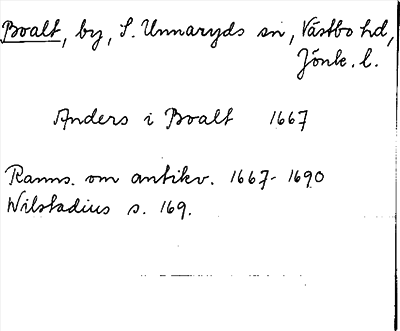 Boalt, by, S. Unnaryds sn, Västbo hd,
Jönk. l.
Anders i Boalt 1667
Ranns. om antikv. 1667-1690
Wilstadius s. 169.